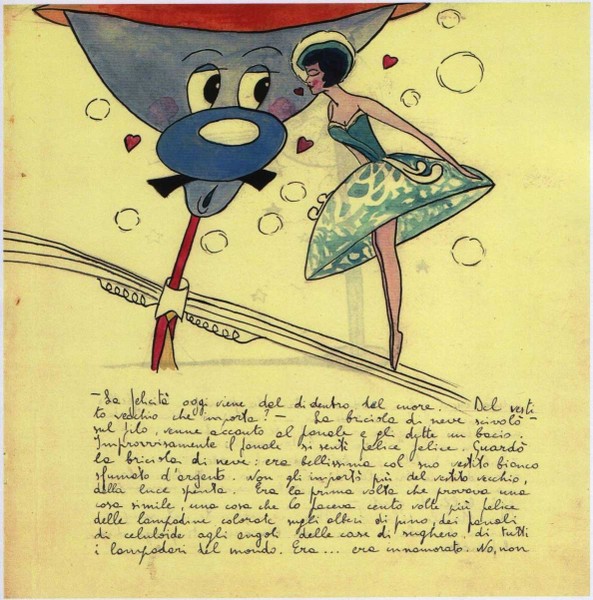 - La felicità oggi viene dal di dentro del cuore. Del vesti
to vecchio che importa? - La briciola di neve scivolò
sul filo, venne accanto al fanale e gli dette un bacio.
Improvvisamente il fanale si sentì felice felice. Guardò
la briciola di neve: era bellissima col suo vestito bianco
sfumato d'argento. Non gli importò più del vestito vecchio,
della luce spenta. Era la prima volta che provava una
cosa simile, una cosa che lo faceva cento volte più felice
delle lampadine colorate sugli alberi di pino, dei fanali
di celuloide agli angoli delle case di sughero, di tutti
i lampadari del mondo. Era... era innamorato. No, non